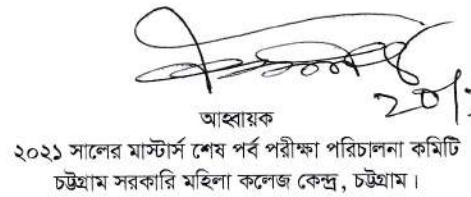 আহ্বায়ক
২০২১ সালের মাস্টার্স শেষ পর্ব পরীক্ষা পরিচালনা কমিটি
চট্টগ্রাম সরকারি মহিলা কলেজ কেন্দ্র, চট্টগ্রাম।